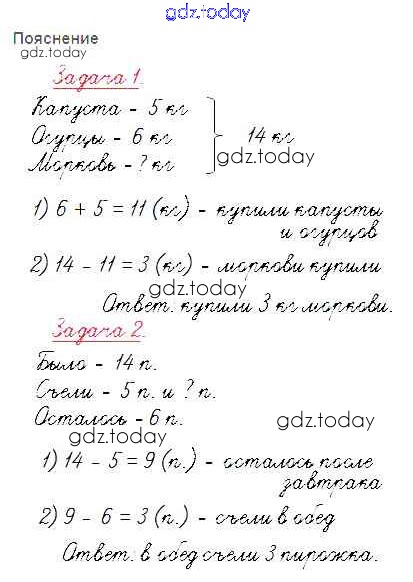 gdz.today
Пояснение
gdz.today
Задача 1.
Капуста - 5 кг
Огурцы - 6 кг
Морковь - ? кг
14 кг
gdz.today
1) 6 + 5 = 11 (кг) - купили капусты
и огурцов
2) 14 - 11 = 3 (кг) - моркови купили
gdz.today
Ответ: купили 3 кг моркови.
Задача 2.
Было - 14 п.
Съели - 5 п. и ? п.
Осталось - 6 п.
gdz.today
gdz.today
1) 14 - 5 = 9 (п.) - осталось после
завтрака
2) 9 - 6 = 3 (п.) - съели в обед
Ответ: в обед съели 3 пирожка.